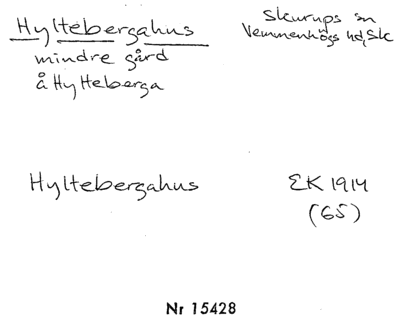 Hyltebergahus
Skurups sn
Vemmenhögs hd, Sk
mindre gård
å Hylteberga
Hyltebergahus
EK 1914
(65)
Nr 15428